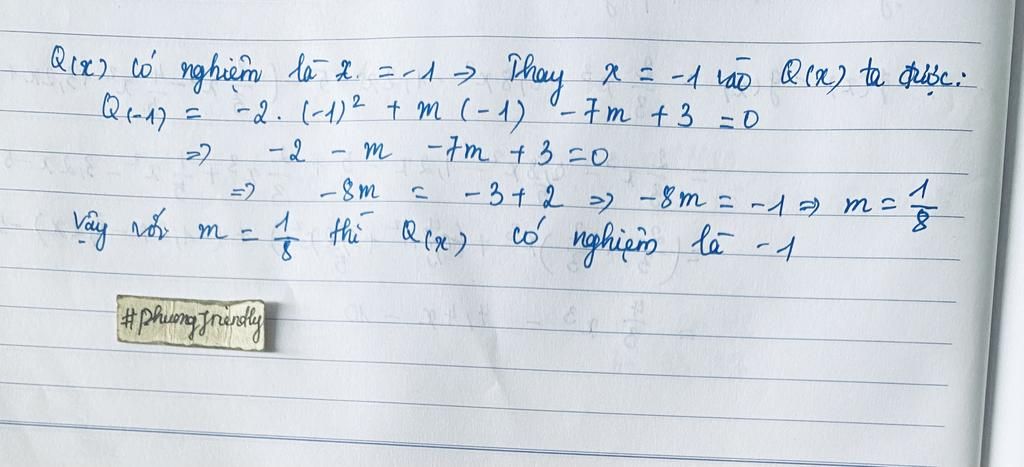 Q(x) có nghiệm là x = -1 => Thay x = -1 vào Q(x) ta được:
Q(-1) = -2. (-1)² + m (-1) - 7m + 3 = 0
=> -2 - m - 7m + 3 = 0
=> -8m = -3 + 2 => -8m = -1 => m = 1/8
Vậy với m = 1/8 thì Q(x) có nghiệm là -1
#phuongfriendly